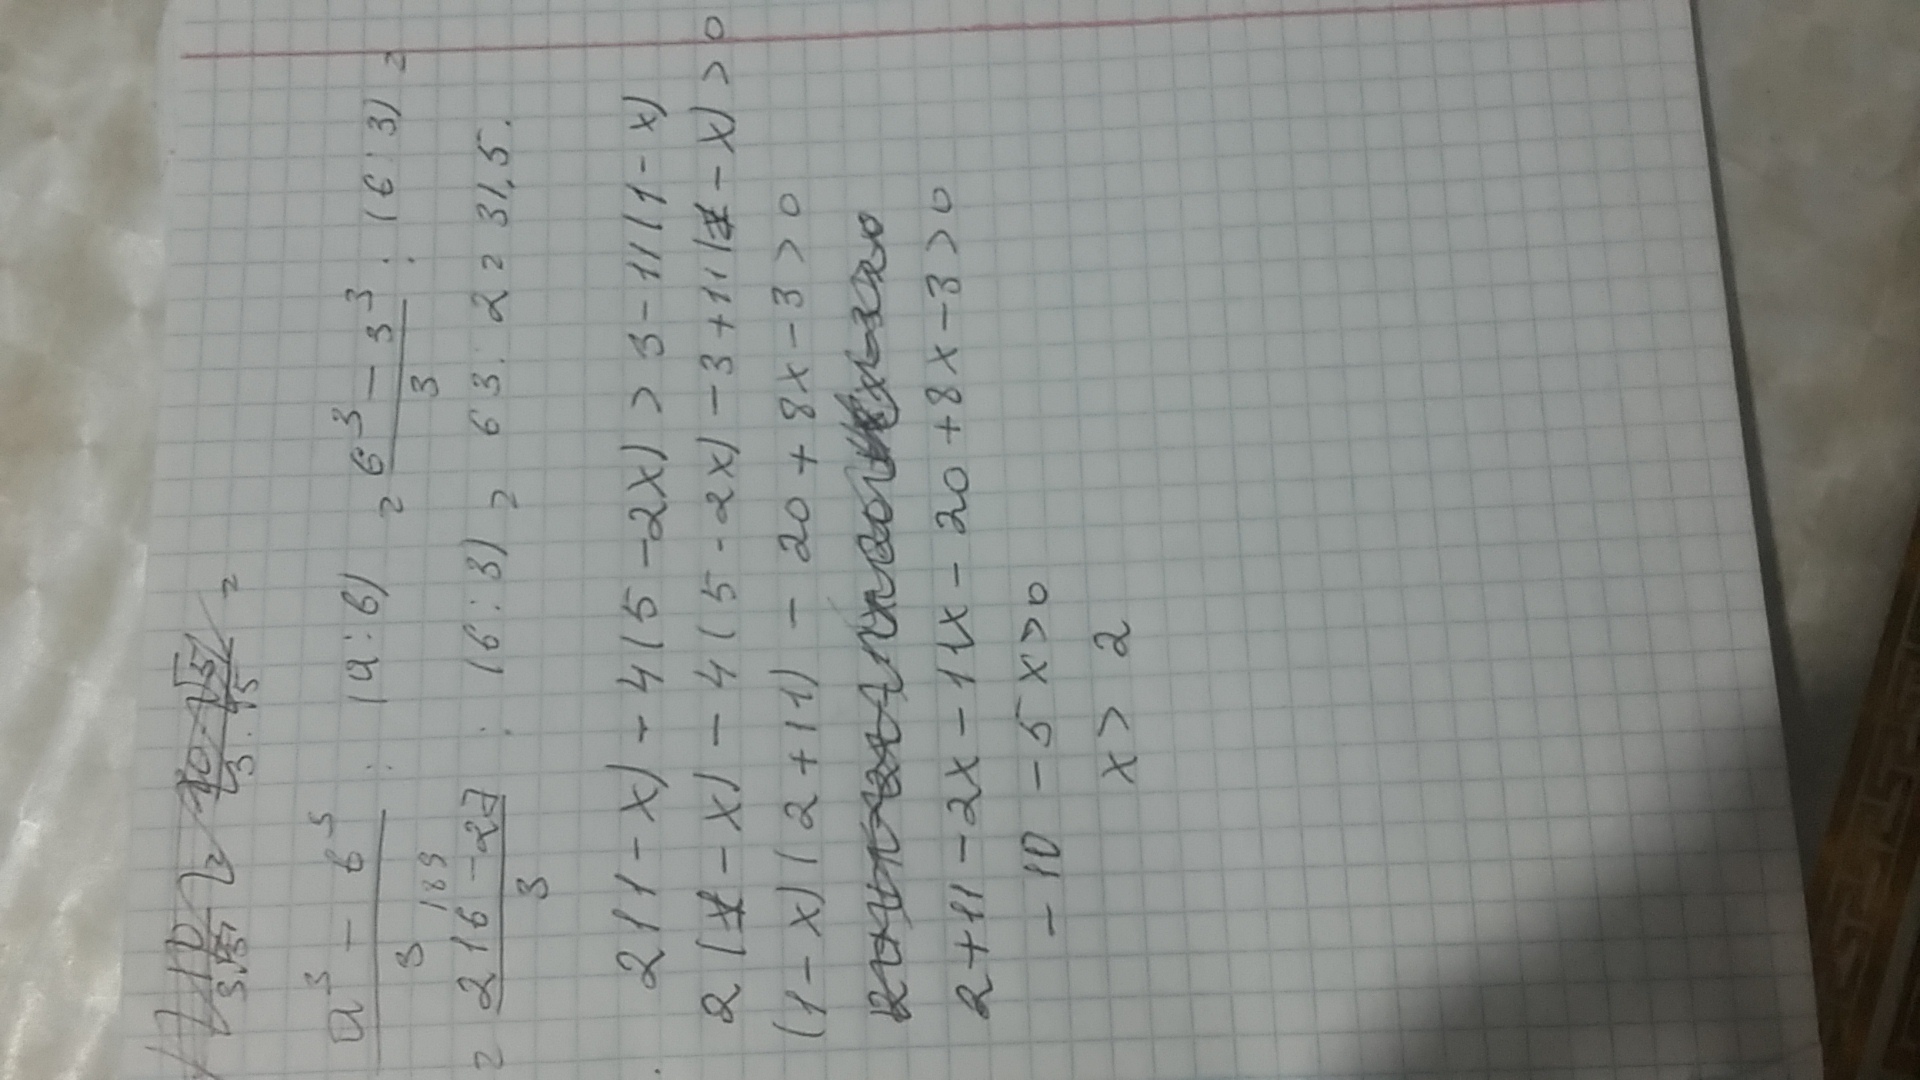 a³ - b³ / 3 : (a : b) = 6³ - 3³ / 3 : (6 : 3) =
= 216 - 27 / 3 : (6 : 3) = 63 : 2 = 31,5.
189
2(1 - x) - 4(5 - 2x) > 3 - 11(1 - x)
2(1 - x) - 4(5 - 2x) - 3 + 11(1 - x) > 0
(1 - x)(2 + 11) - 20 + 8x - 3 > 0
2 + 11 - 2x - 11x - 20 + 8x - 3 > 0
- 10 - 5x > 0
x > 2